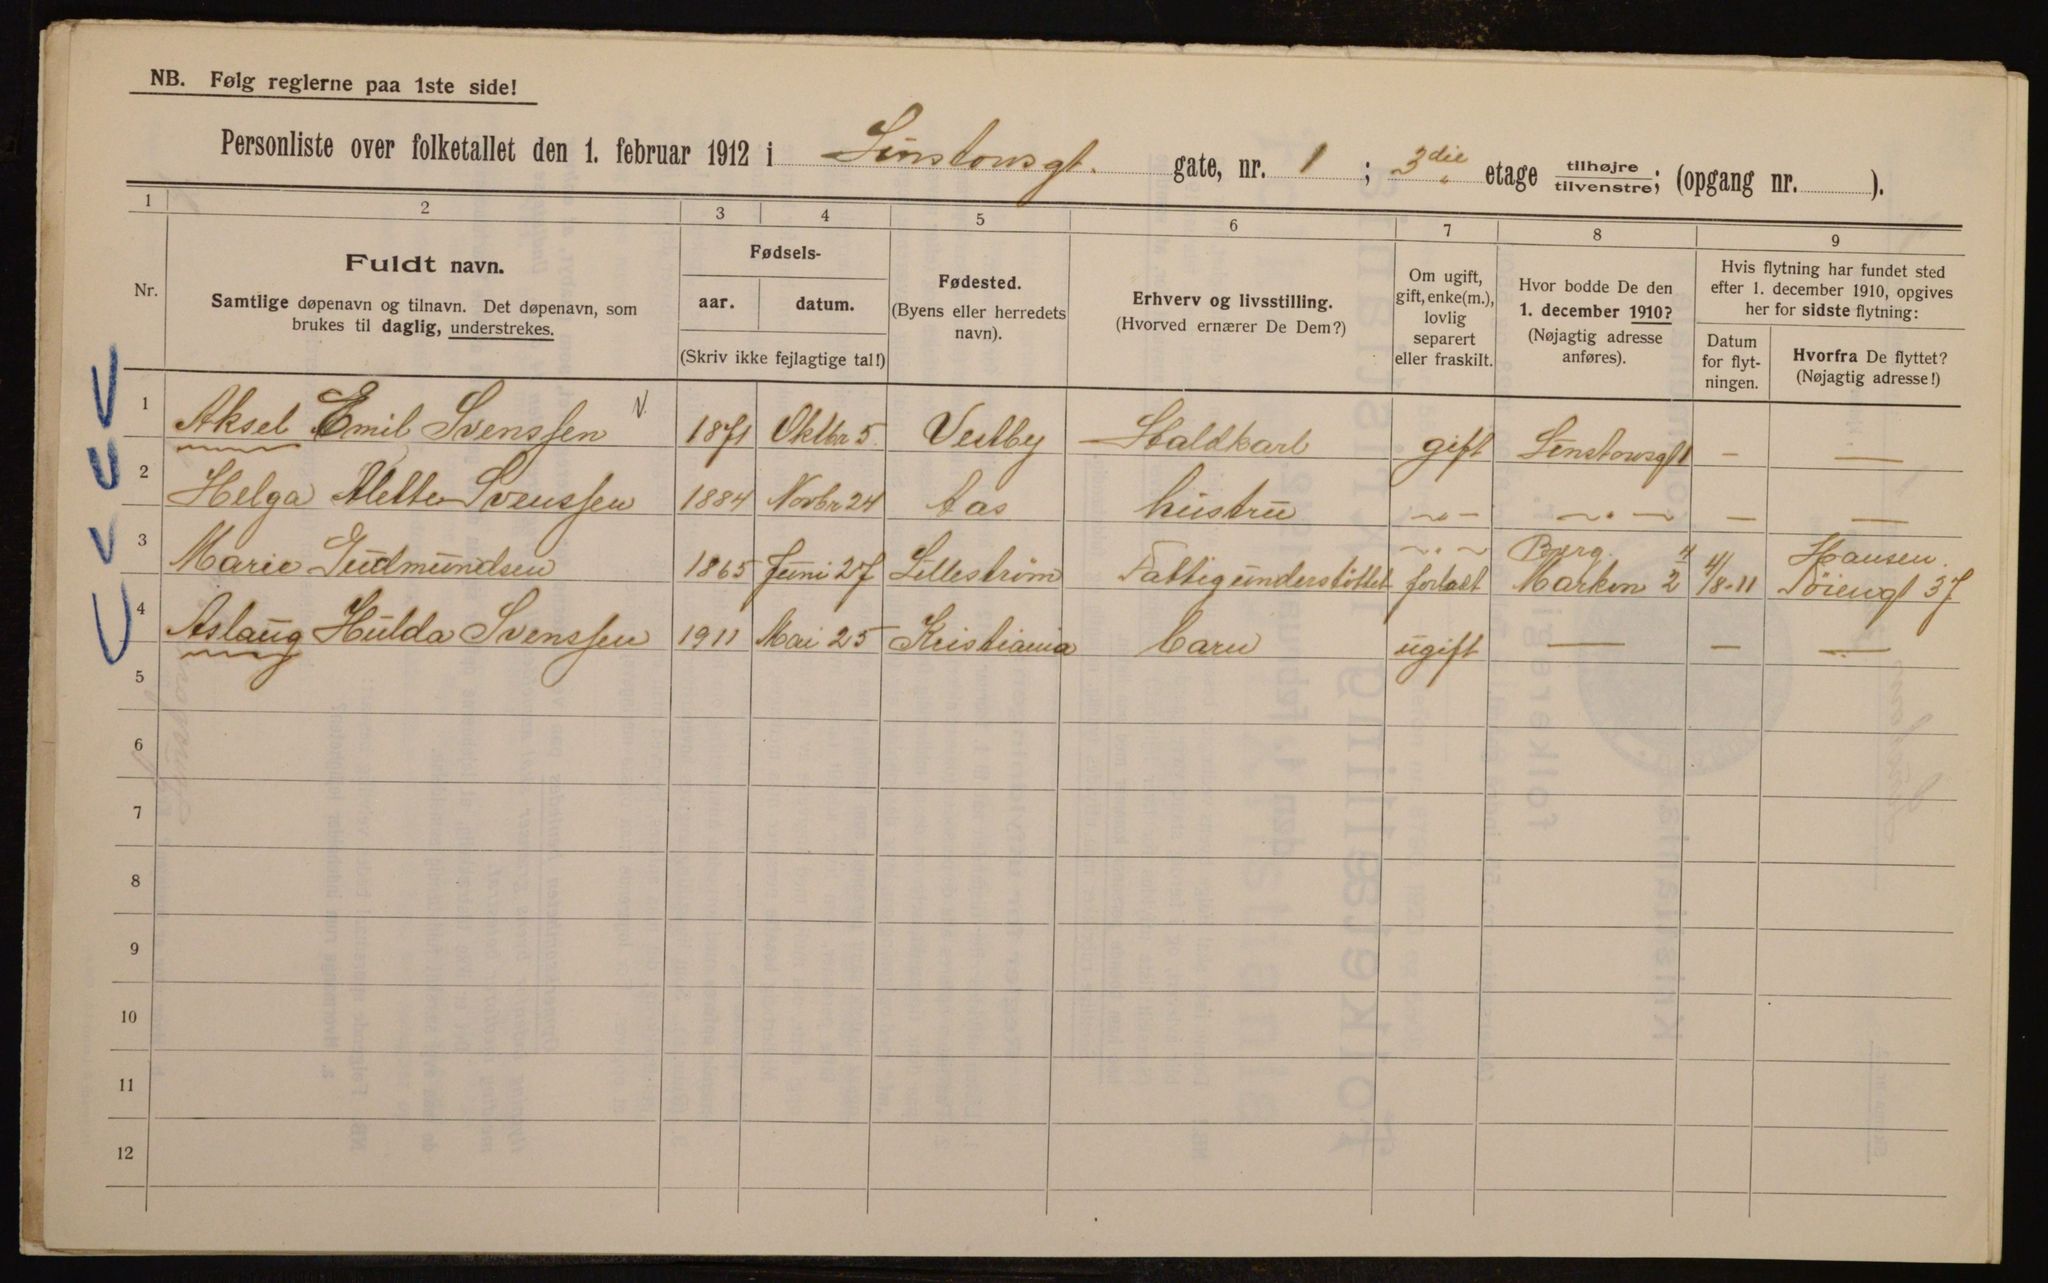 NB. Følg reglerne paa 1ste side!
Personliste over folketallet den 1. februar 1912 i Linstowsgt. gate, nr. 1 ; 3die etage tilhøjre tilvenstre; (opgang nr. ).
1 2 3 4 5 6 7 8 9
Nr.
Fuldt navn.
Samtlige døpenavn og tilnavn. Det døpenavn, som
brukes til daglig, understrekes.
Fødsels-
aar. datum.
(Skriv ikke fejlagtige tal!)
Fødested.
(Byens eller herredets
navn).
Erhverv og livsstilling.
(Hvorved ernærer De Dem?)
Om ugift,
gift, enke(m.),
lovlig
separert
eller fraskilt.
Hvor bodde De den
1. december 1910?
(Nøjagtig adresse
anføres).
Hvis flytning har fundet sted
efter 1. december 1910, opgives
her for sidste flytning:
Datum
for flyt-
ningen.
Hvorfra De flyttet?
(Nøjagtig adresse!)
1 Aksel Emil Svenssen 1871 Oktbr 5. Vestby Staldkarl gift Linstowsgt 1 — —
2 Helga Alette Svenssen 1884 Novbr 24 Aas hustru —„— —„— — —
3 Marie Gudmundsen 1865 Juni 27 Lillestrøm Fattigunderstøttet —„— forladt Berg. Marken 2 4/8-11 Hansen Tøiengt 37
4 Aslaug Hulda Svenssen 1911 Mai 25 Kristiania barn ugift — — —
5
6
7
8
9
10
11
12